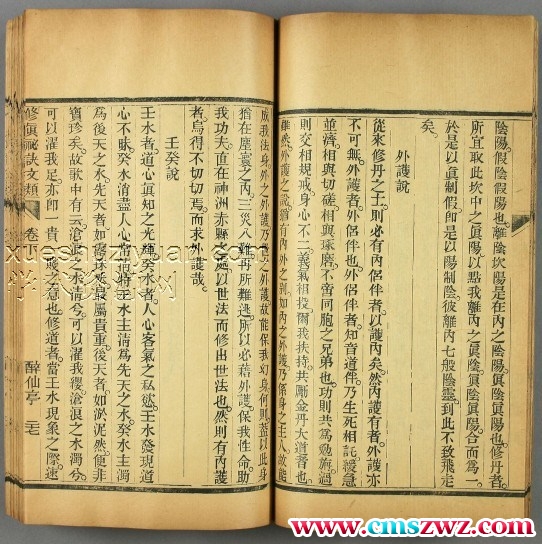 陰陽。假陰假陽也。離陰坎陽。是在內之陰陽。眞陰眞陽也。修丹者。
所宜取此坎中之眞陽。以點我離內之眞陰。眞陰眞陽。合而為一。
於是以眞制假。卽是以陽制陰。彼離內七般陰靈。到此不致飛走
矣。
外護說
從來修丹之士。則必有內侶伴者。以護內矣。然內護有者。外護亦
不可無。外護者。外侶伴也。外侶伴者。知音道伴。乃生死相託。緩急
並濟。相與切磋。相與琢磨。不啻同胞之兄弟也。功則共為勉旃。過
則交相規戒。身心不二。義氣相投。爾我扶持。共勵金丹大道者也。
雖然。外護之說。猶有內外之別。如內之外護。乃係身之主人。故能
成我法身。外之外護。乃
之外護。故能保我幻身。何則。蓋以此身
猶在塵寰之內。三災八難。再所難逃。所以必藉外護。保我性命。助
我功夫。直在神洲赤縣
處。以世法而修出世法也。然則有內護
者。烏得不切切焉。而求外護哉。
壬癸說
壬水者。道心眞知之光輝。癸水者。人心客氣之私慾。壬水發現。道
心不昧。癸水消盡。人心常清。特壬水主清。為先天之水。癸水主濁。
為後天之水。先天者。如
最屬貴重。後天者。如淤泥然。便非
寶珍矣。故歌中有云。滄浪之水清兮。可以濯我纓。滄浪之水濁兮。
可以濯我足。亦卽一貴
之意也。修道者。當壬水現象之際。速
修眞祕訣文類
卷
醉仙亭
三七
xueshuyuan.com
学术古籍网
www.cmszwz.com